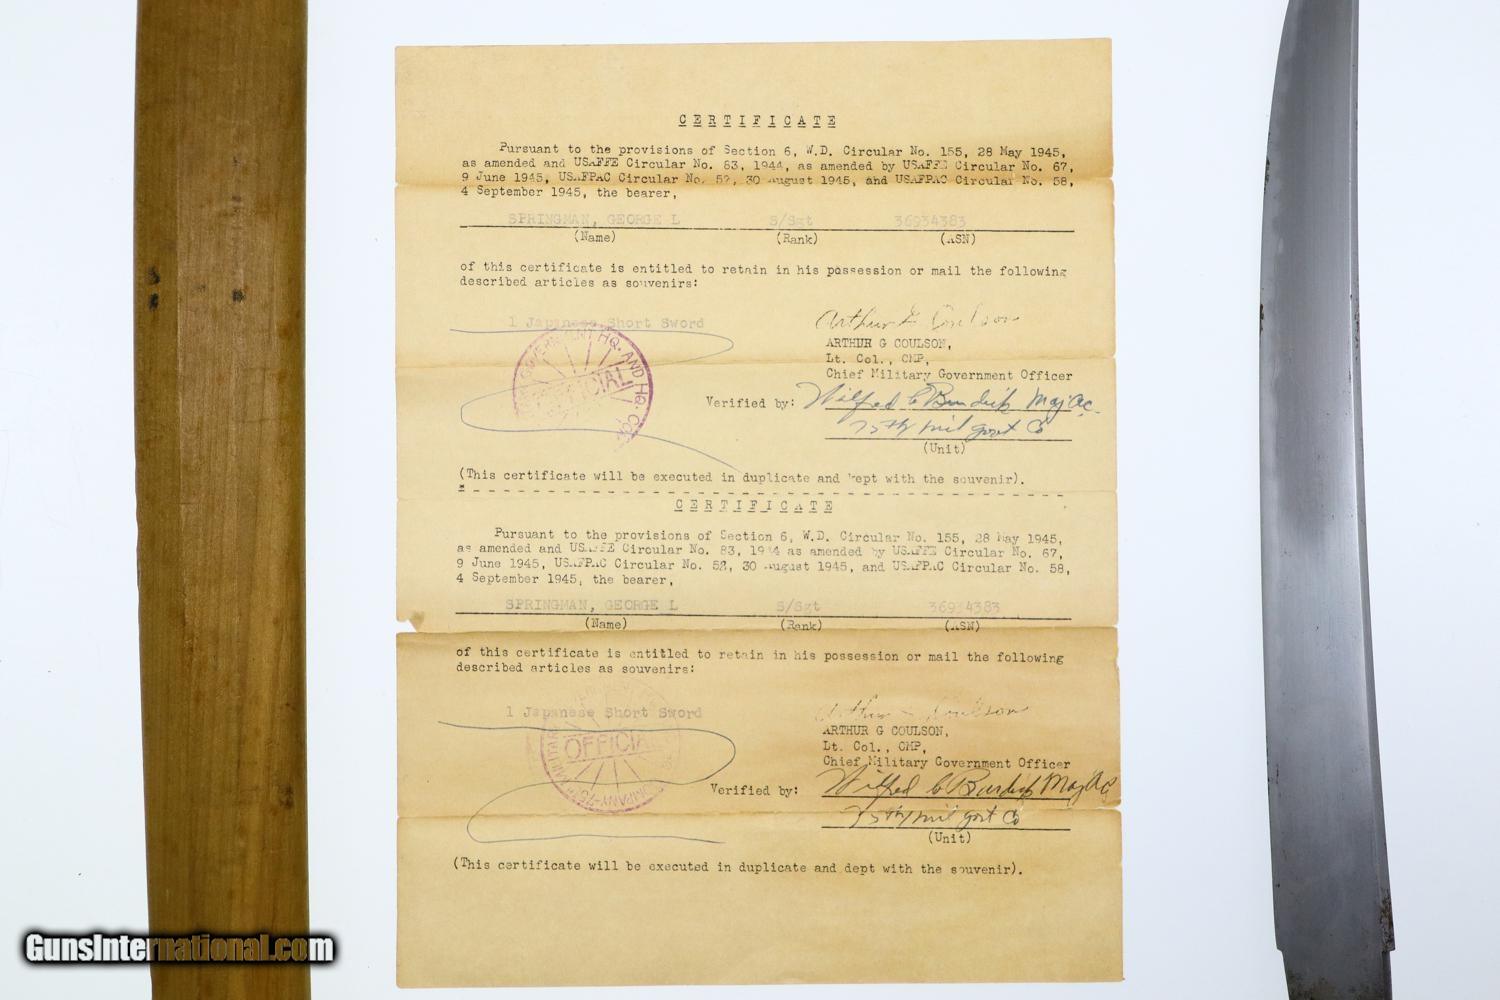 CERTIFICATE
Pursuant to the provisions of Section 6, W.D. Circular No. 155, 28 May 1945,
as amended and USAFFE Circular No. 83, 1944, as amended by USAFFE Circular No. 67,
9 June 1945, USAFPAC Circular No. 52, 30 August 1945, and USAFPAC Circular No. 58,
4 September 1945, the bearer,
SPRINGMAN, GEORGE L S/Sgt 36934383
(Name) (Rank) (ASN)
of this certificate is entitled to retain in his possession or mail the following
described articles as souvenirs:
1 Japanese Short Sword
Arthur G Coulson
ARTHUR G COULSON,
Lt. Col., CMP,
Chief Military Government Officer
GOVERNMENT HQ. AND HQ. CO
OFFICIAL
Verified by: Wilfred C Burdick Maj AC.
75th Mil Govt Co
(Unit)
(This certificate will be executed in duplicate and kept with the souvenir).
CERTIFICATE
Pursuant to the provisions of Section 6, W.D. Circular No. 155, 28 May 1945,
as amended and USAFFE Circular No. 83, 1944 as amended by USAFFE Circular No. 67,
9 June 1945, USAFPAC Circular No. 52, 30 August 1945, and USAFPAC Circular No. 58,
4 September 1945, the bearer,
SPRINGMAN, GEORGE L S/Sgt 36934383
(Name) (Rank) (ASN)
of this certificate is entitled to retain in his possession or mail the following
described articles as souvenirs:
1 Japanese Short Sword
Arthur G Coulson
ARTHUR G COULSON,
Lt. Col., CMP,
Chief Military Government Officer
OFFICIAL
Verified by: Wilfred C Burdick Maj AC
75th Mil Govt Co
(Unit)
(This certificate will be executed in duplicate and dept with the souvenir).
GunsInternational.com